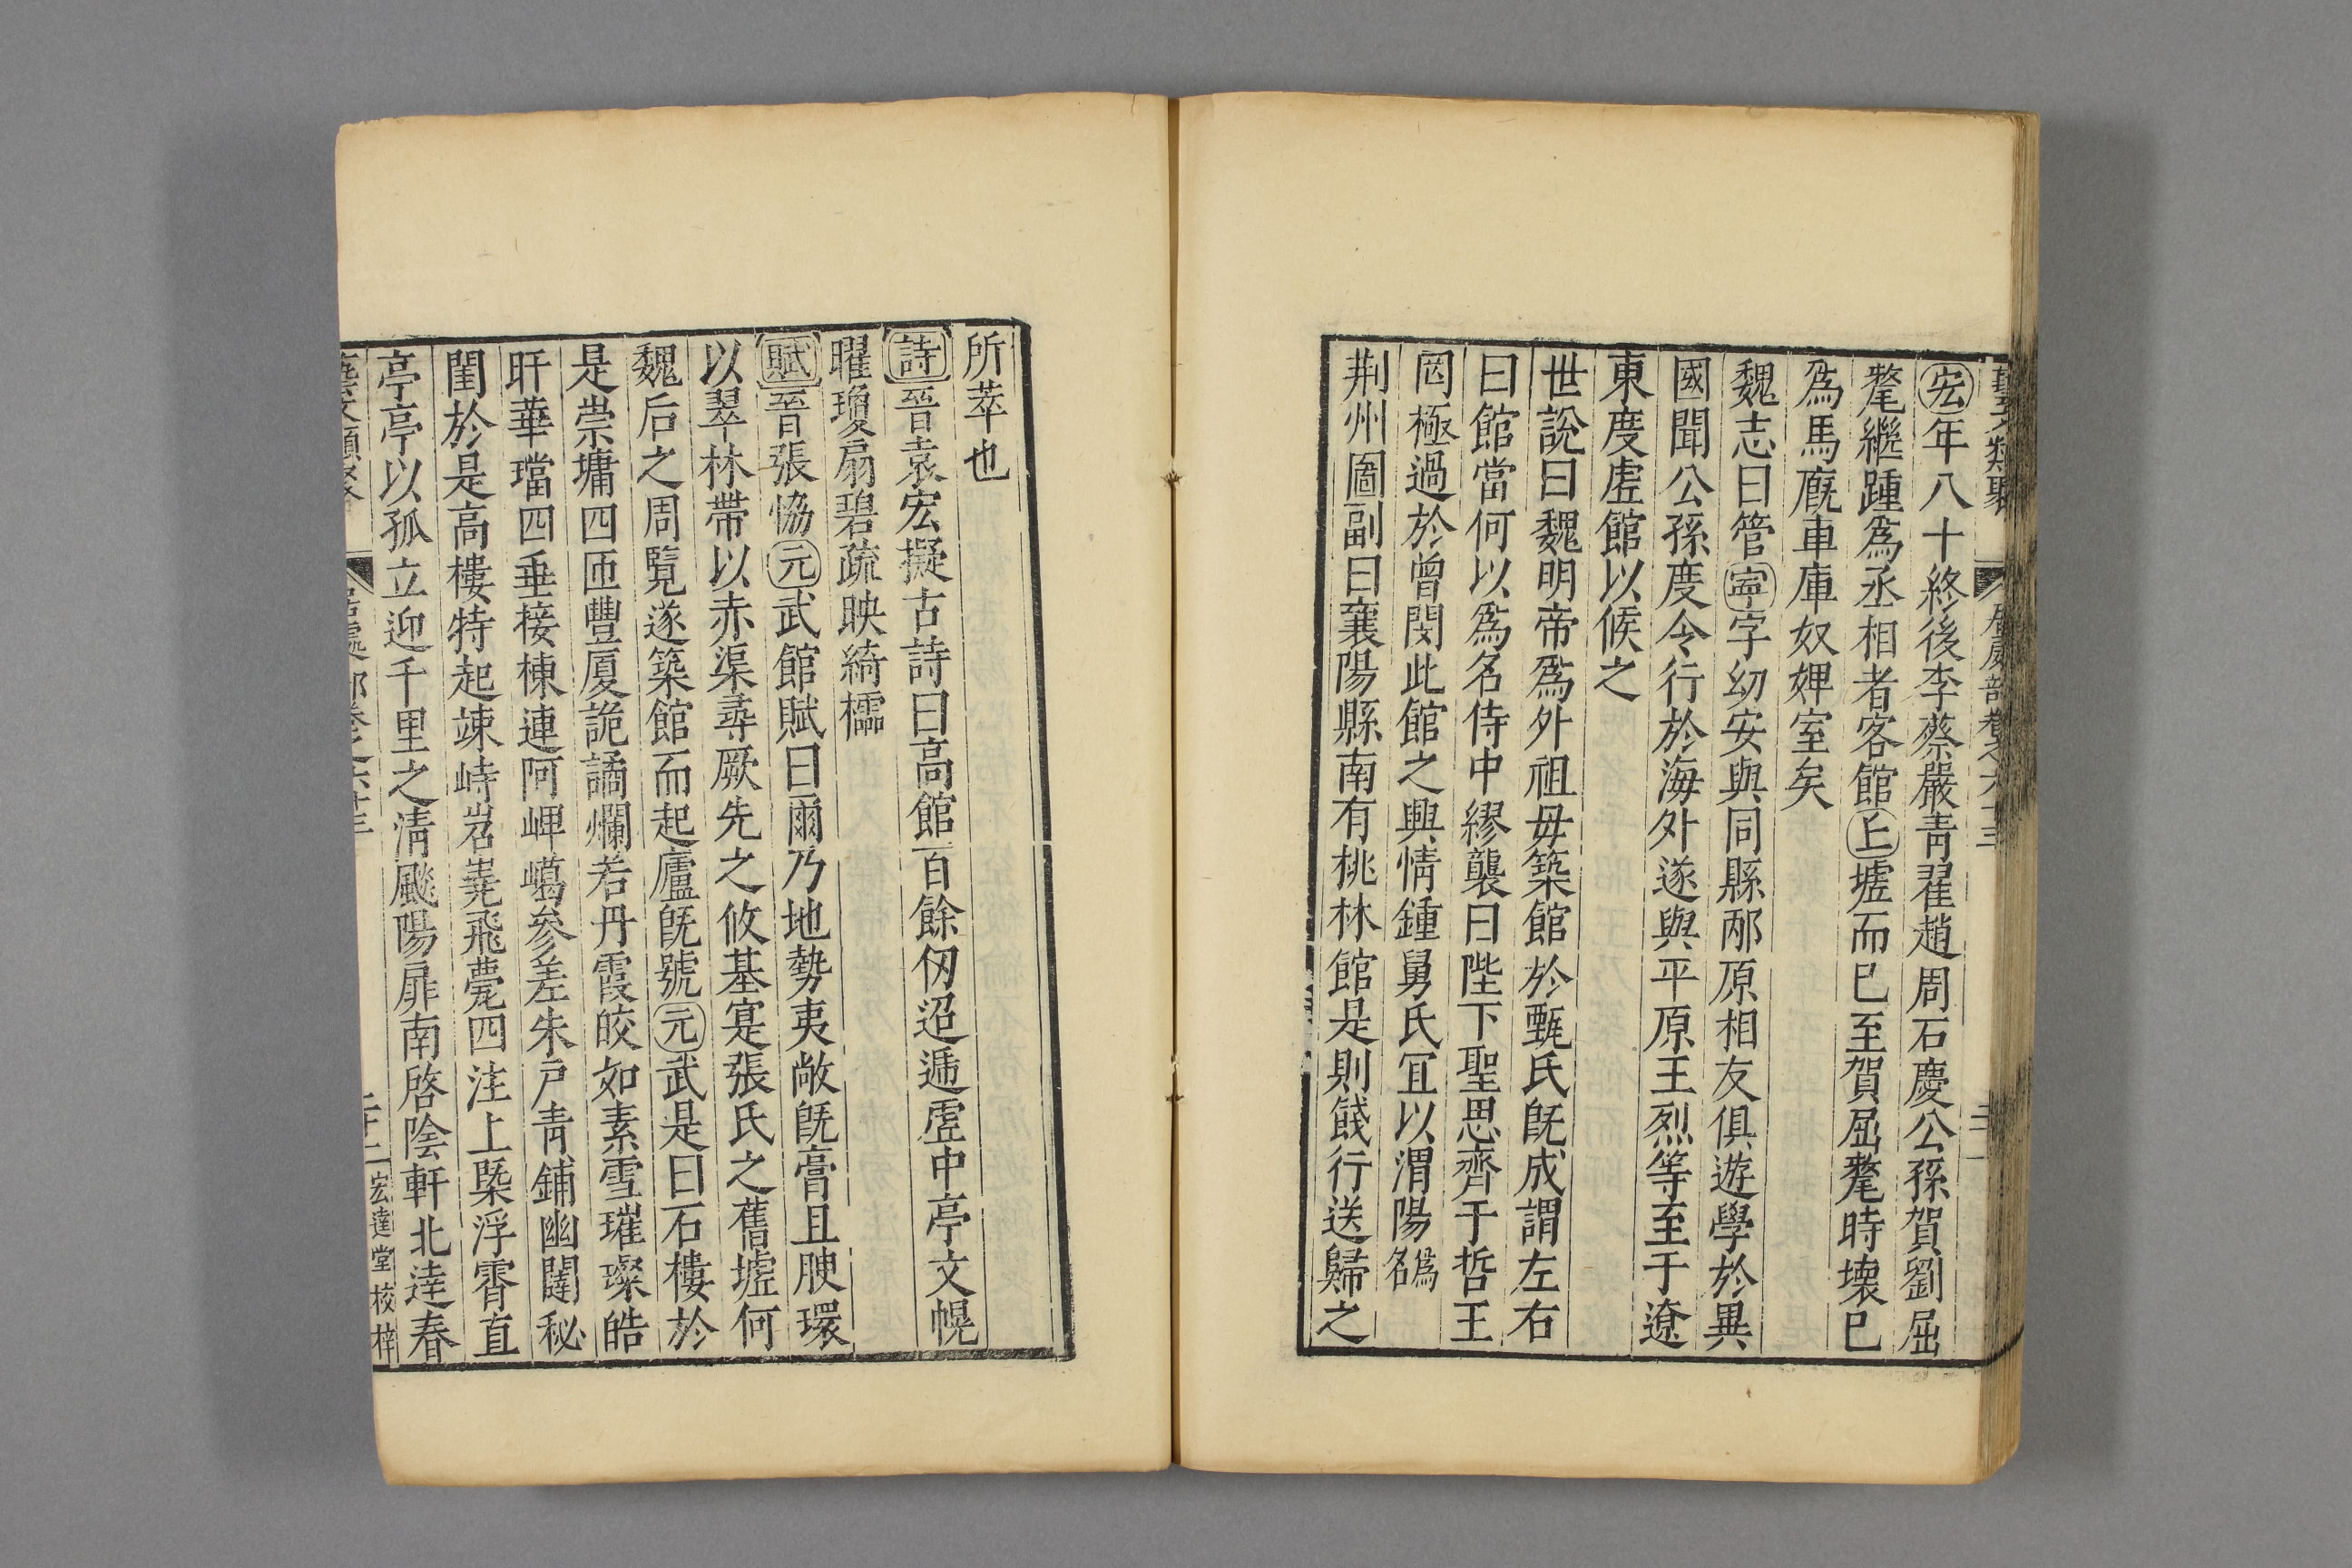 藝文類聚 居處部卷之六十三
宏年八十終後李蔡嚴靑翟趙周石慶公孫賀劉屈
氂繼踵爲丞相者客館丘墟而已至賀屈氂時壞已
爲馬廐車庫奴婢室矣
魏志曰管寧字幼安與同縣邴原相友俱遊學於異
國聞公孫度令行於海外遂與平原王烈等至于遼
東度虛館以候之
世說曰魏明帝爲外祖毋築館於甄氏旣成謂左右
曰館當何以爲名侍中繆襲曰陛下聖思齊于哲王
罔極過於曾閔此館之興情鍾舅氏冝以渭陽爲名
荆州圖副曰襄陽縣南有桃林館是則餞行送歸之
所萃也
詩晉袁宏擬古詩曰高館百餘仭迢遞虛中亭文幌
曜瓊扇碧疏映綺櫺
賦晉張恊元武館賦曰爾乃地勢夷敞旣膏且腴環
以翠林帶以赤渠尋厥先之攸基寔張氏之舊墟何
魏后之周覽遂築館而起廬旣號元武是曰石樓於
是崇墉四匝豐厦詭譎爛若丹霞皎如素雪璀璨皓
旰華璫四垂接棟連阿岬嶱參差朱戶靑鋪幽闥秘
閨於是高樓特起竦峙岧嶤飛甍四注上槩浮霄直
亭亭以孤立迎千里之清飈陽扉南啓陰軒北達春
藝文類聚 居處部卷之六十三 二十二 宏達堂校梓